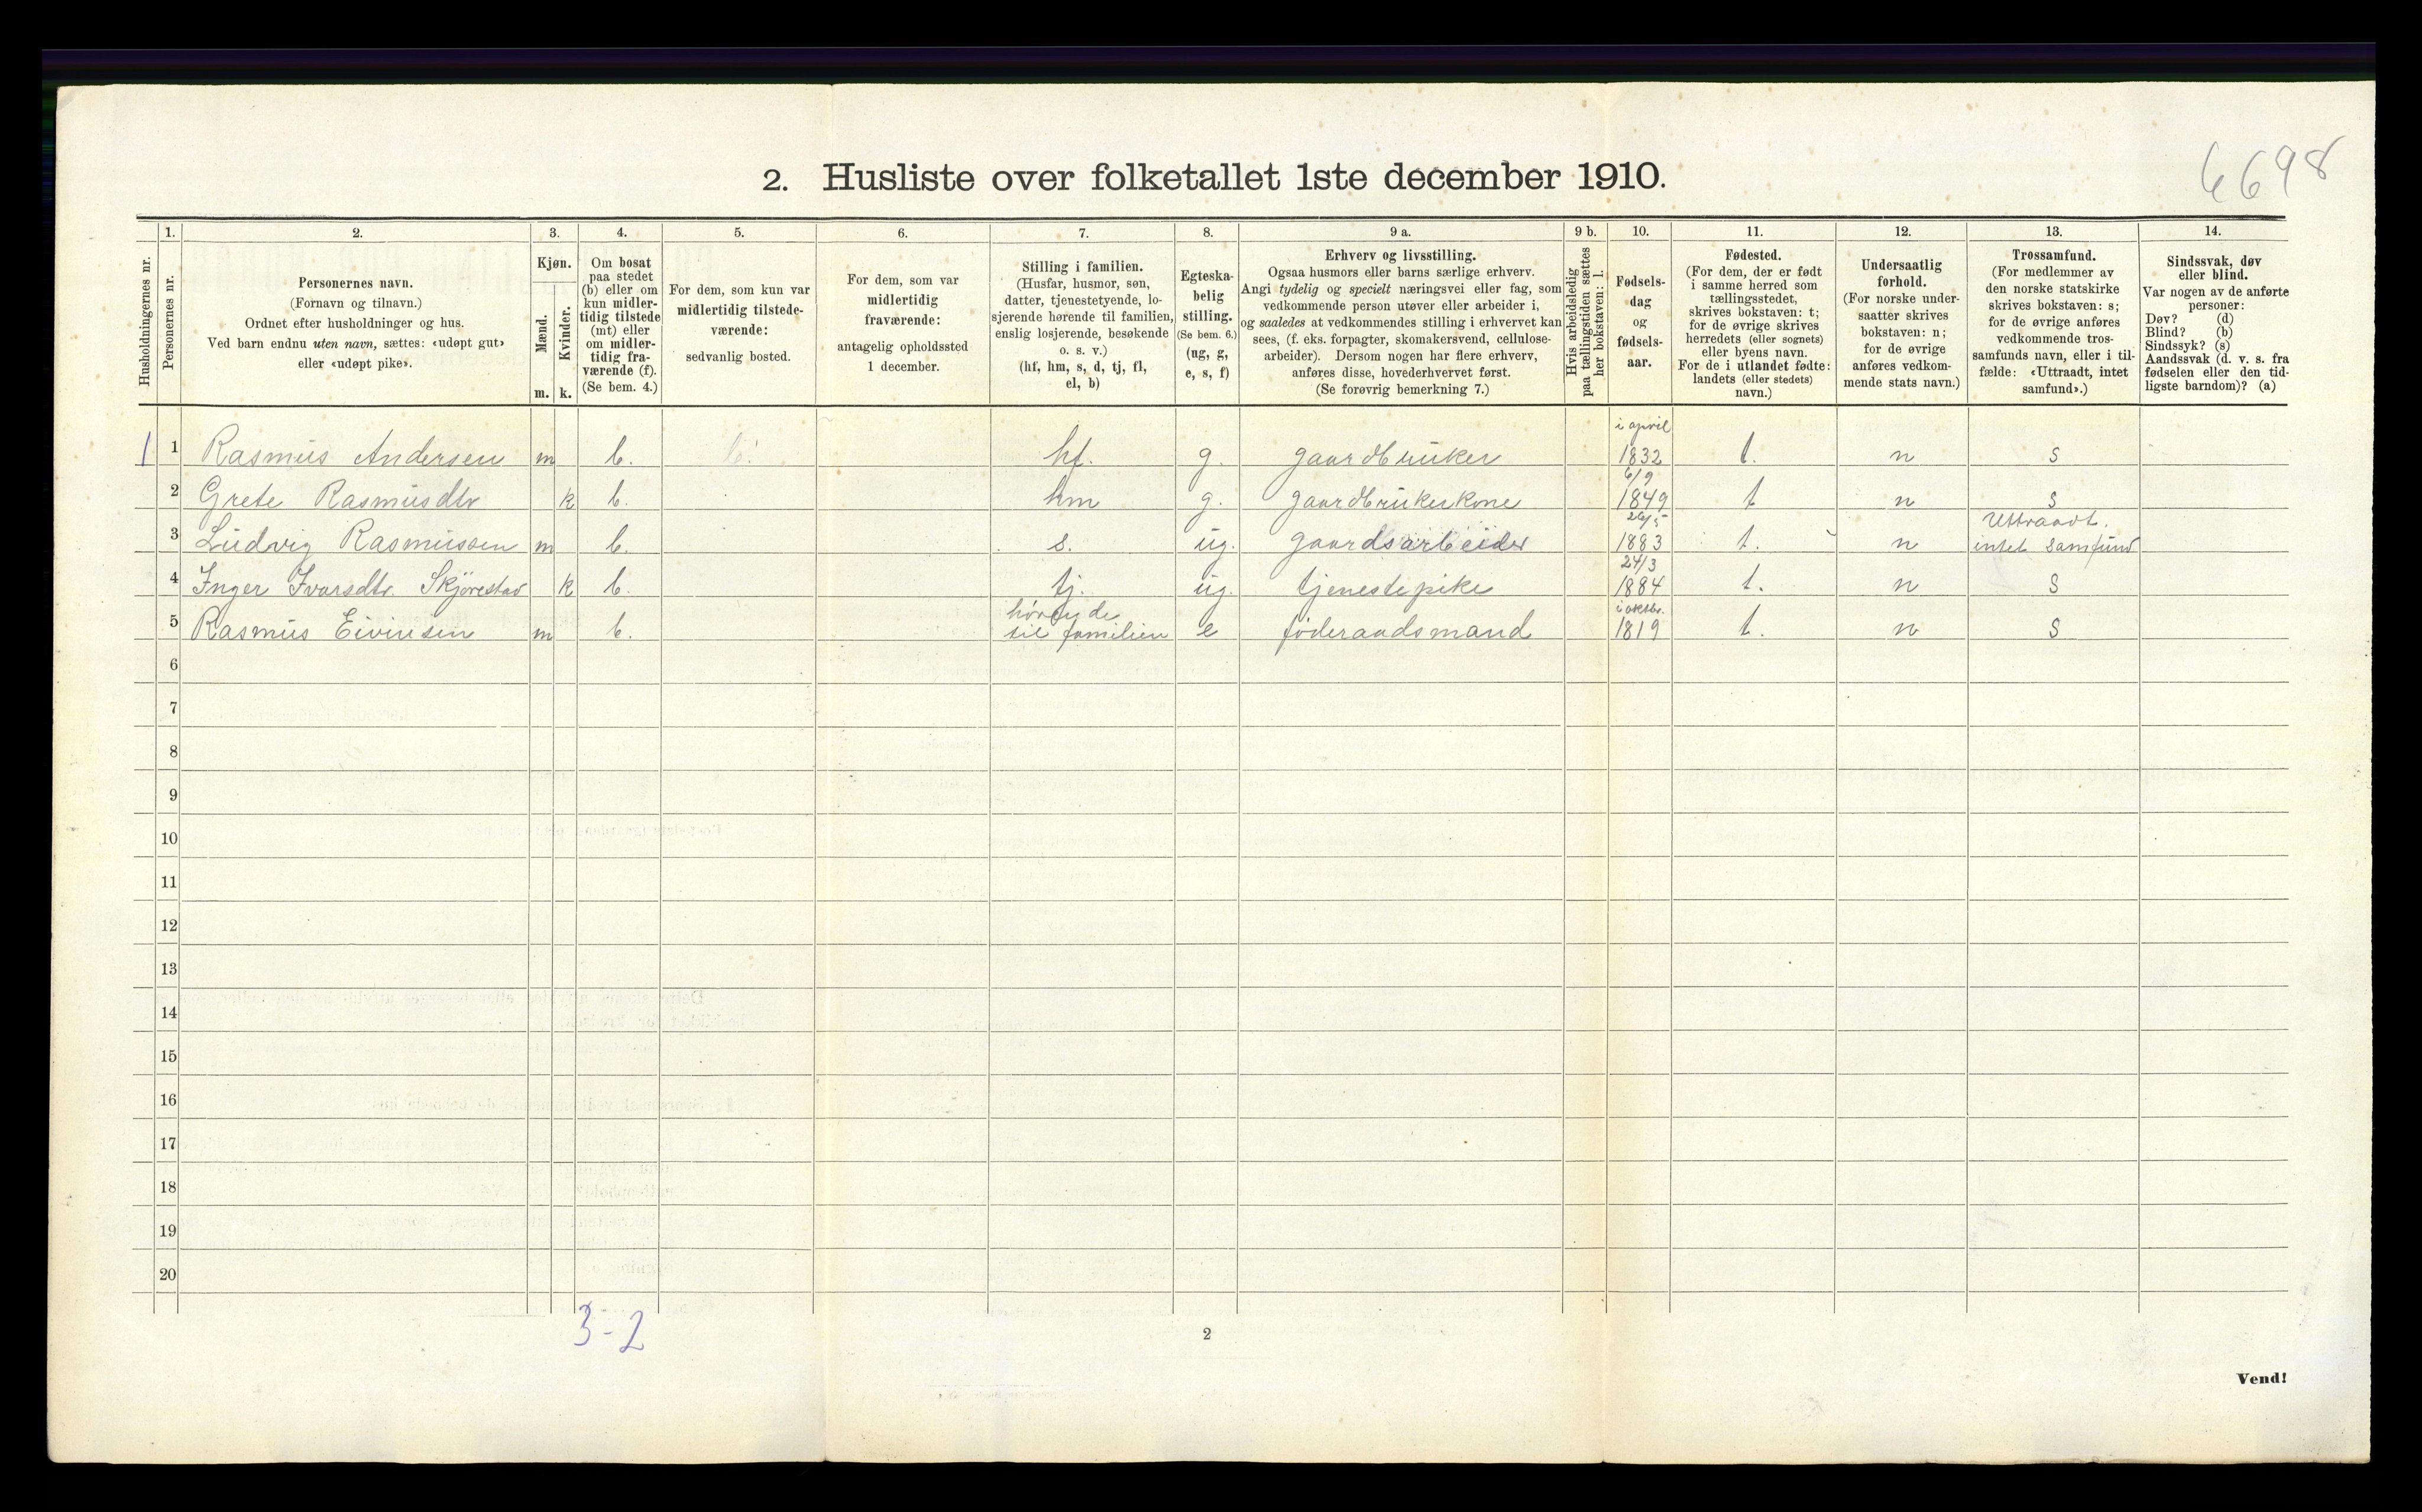 6698
2. Husliste over folketallet 1ste december 1910.
Husholdningernes nr.
1.
Personernes nr.
2.
Personernes navn.
(Fornavn og tilnavn.)
Ordnet efter husholdninger og hus.
Ved barn endnu uten navn, sættes: «udøpt gut»
eller «udøpt pike».
3.
Kjøn.
Mænd.
m.
Kvinder.
k.
4.
Om bosat
paa stedet
(b) eller om
kun midler-
tidig tilstede
(mt) eller
om midler-
tidig fra-
værende (f).
(Se bem. 4.)
5.
For dem, som kun var
midlertidig tilstede-
værende:
sedvanlig bosted.
6.
For dem, som var
midlertidig
fraværende:
antagelig opholdssted
1 december.
7.
Stilling i familien.
(Husfar, husmor, søn,
datter, tjenestetyende, lo-
sjerende hørende til familien,
enslig losjerende, besøkende
o. s. v.)
(hf, hm, s, d, tj, fl,
el, b)
8.
Egteska-
belig
stilling.
(Se bem. 6.)
(ug, g,
e, s, f)
9 a.
Erhverv og livsstilling.
Ogsaa husmors eller barns særlige erhverv.
Angi tydelig og specielt næringsvei eller fag, som
vedkommende person utøver eller arbeider i,
og saaledes at vedkommendes stilling i erhvervet kan
sees, (f. eks. forpagter, skomakersvend, cellulose-
arbeider). Dersom nogen har flere erhverv,
anføres disse, hovederhvervet først.
(Se forøvrig bemerkning 7.)
9 b.
Hvis arbeidsledig
paa tællingstiden sættes
her bokstaven: l.
10.
Fødsels-
dag
og
fødsels-
aar.
11.
Fødested.
(For dem, der er født
i samme herred som
tællingsstedet,
skrives bokstaven: t;
for de øvrige skrives
herredets (eller sognets)
eller byens navn.
For de i utlandet fødte:
landets (eller stedets)
navn.)
12.
Undersaatlig
forhold.
(For norske under-
saatter skrives
bokstaven: n;
for de øvrige
anføres vedkom-
mende stats navn.)
13.
Trossamfund.
(For medlemmer av
den norske statskirke
skrives bokstaven: s;
for de øvrige anføres
vedkommende tros-
samfunds navn, eller i til-
fælde: «Uttraadt, intet
samfund».)
14.
Sindssvak, døv
eller blind.
Var nogen av de anførte
personer:
Døv? (d)
Blind? (b)
Sindssyk? (s)
Aandssvak (d. v. s. fra
fødselen eller den tid-
ligste barndom)? (a)
i april
1 1 Rasmus Andersen m b. b. hf. g. gaardbruker 1832 t. n s
6/9
2 Grete Rasmusdtr k b. hm g. gaardbrukerkone 1849 t n s
26/5 Uttraadt.
3 Ludvig Rasmussen m b. s. ug. gaardsarbeider 1883 t. n intet samfund
24/3
4 Inger Ivarsdtr. Skjørestad k b. tj. ug. tjenestepike 1884 t. n s
hørende i oktbr.
5 Rasmus Eivinsen m b. til familien e føderaadsmand 1819 t. n s
6
7
8
9
10
11
12
13
14
15
16
17
18
19
20
3-2
2
Vend!